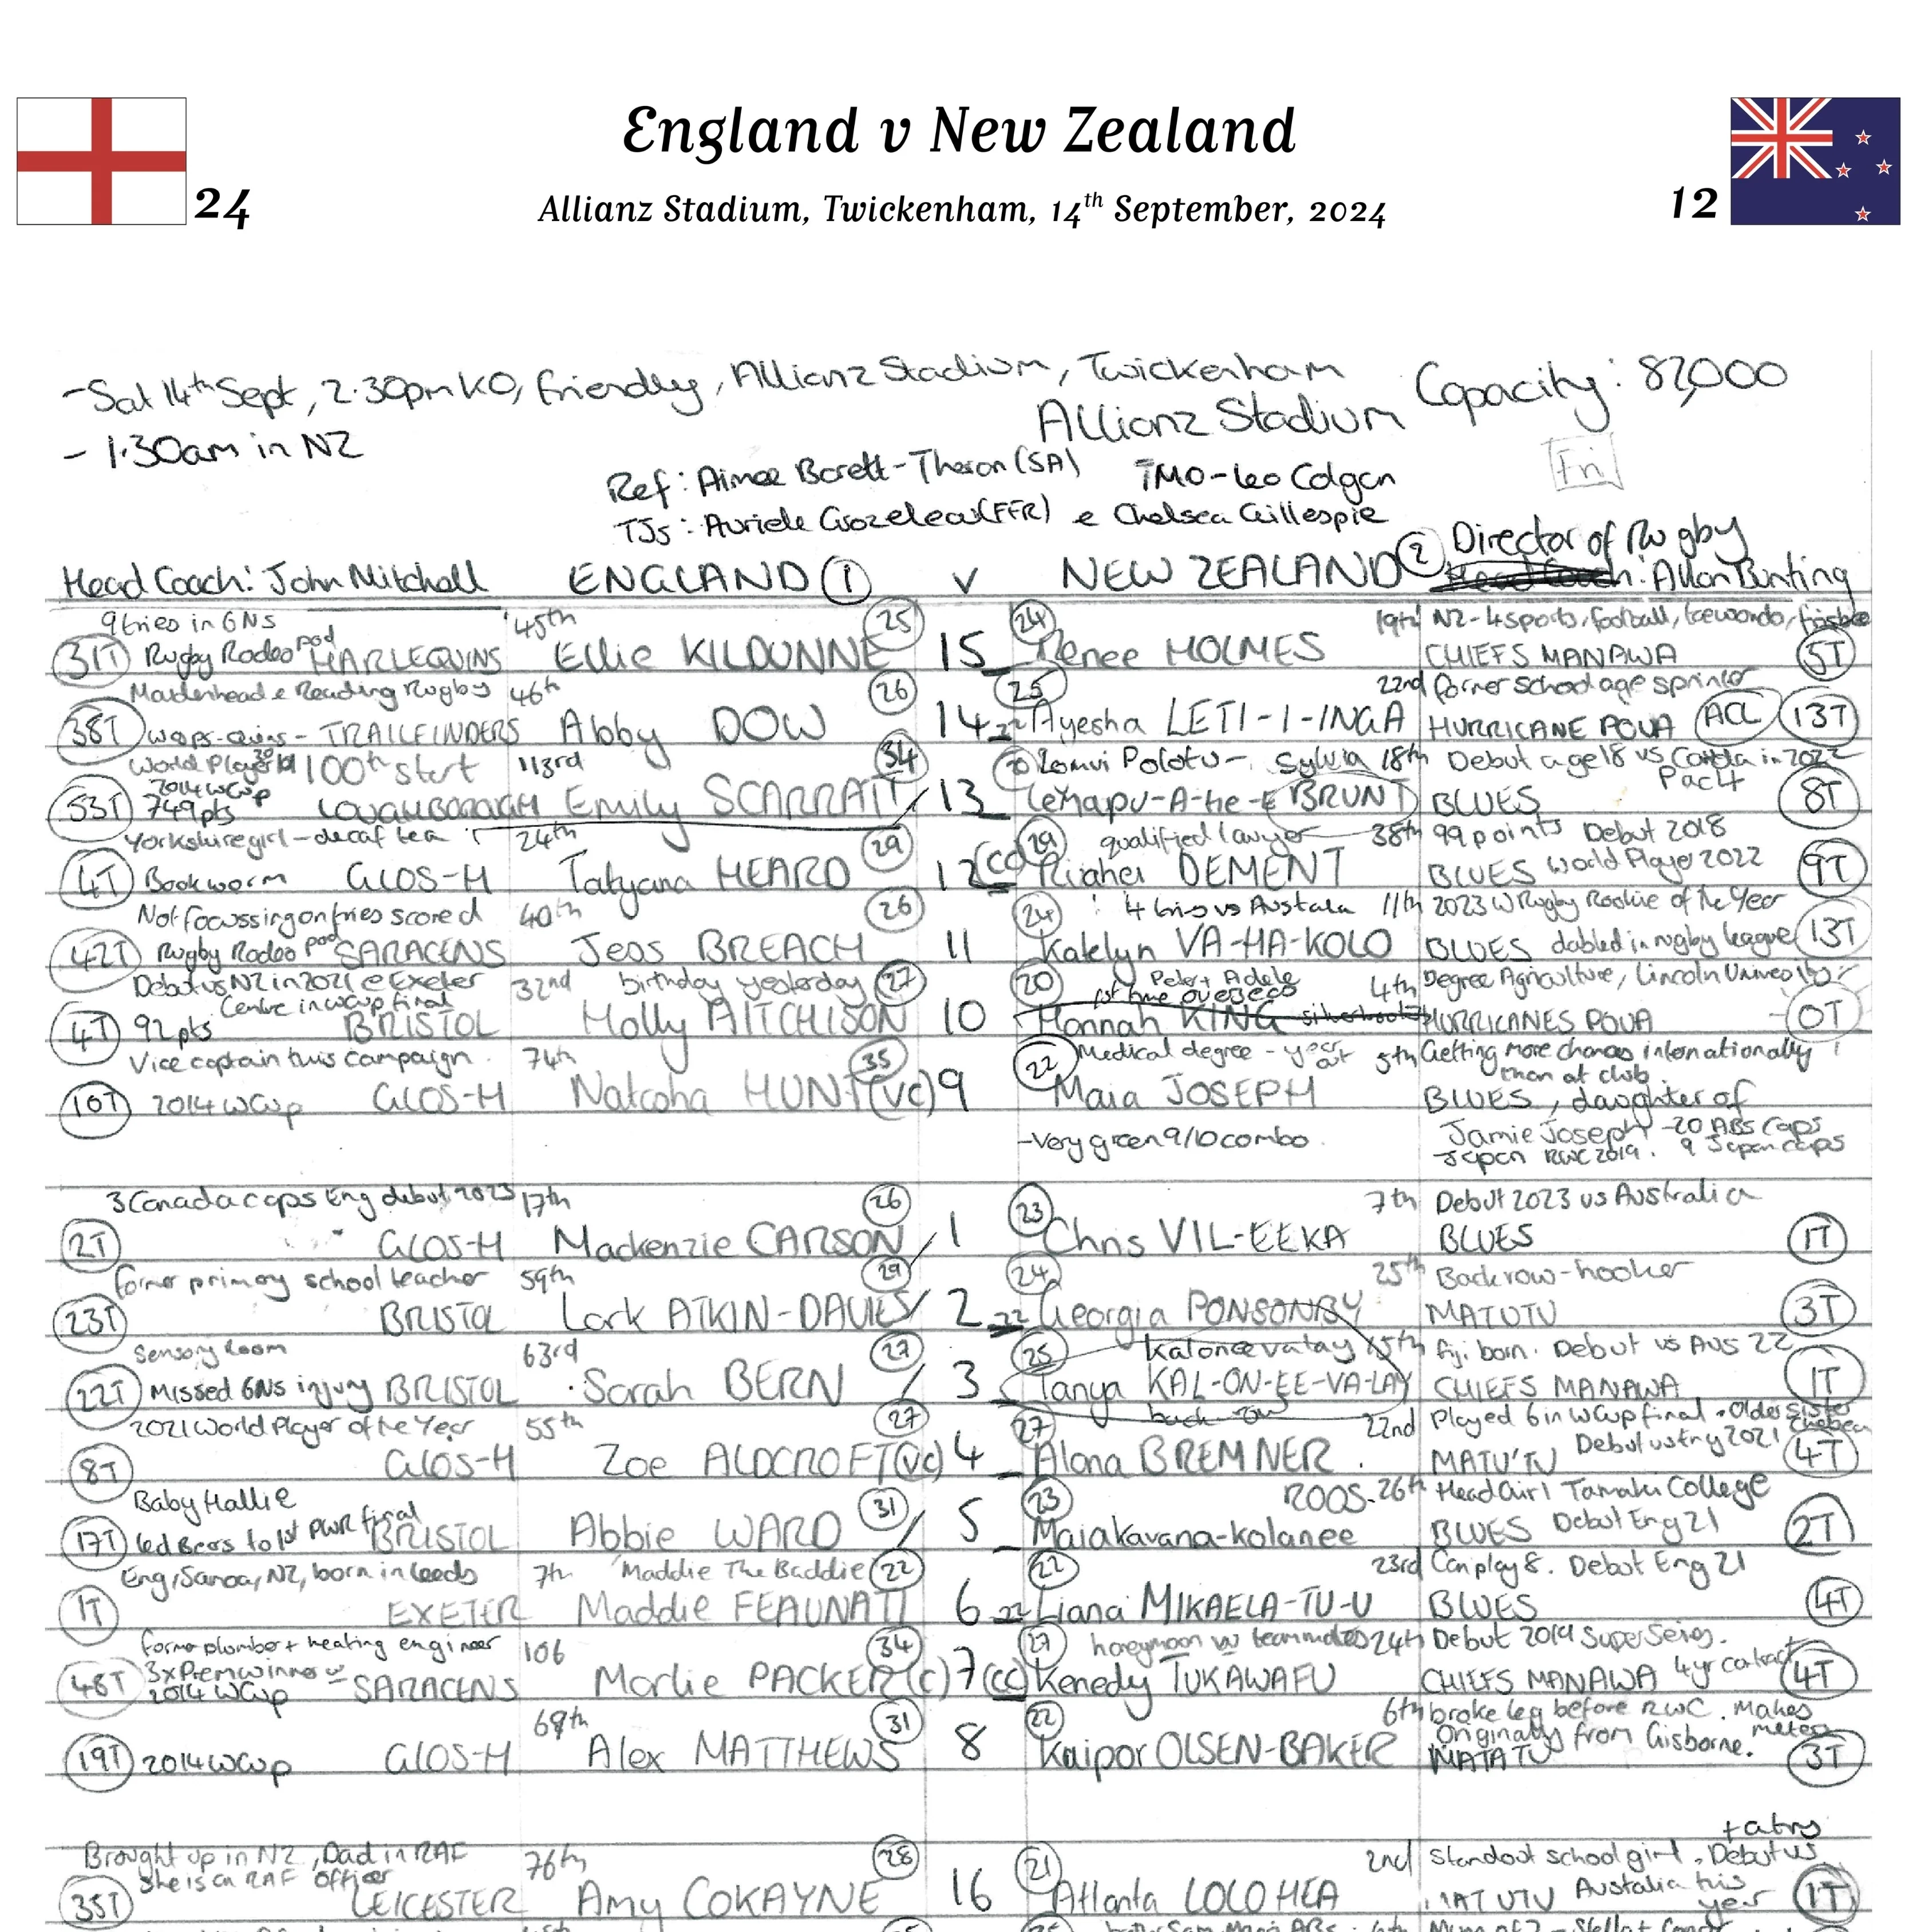 England v New Zealand
24
Allianz Stadium, Twickenham, 14th September, 2024
12
- Sat 14th Sept, 2.30pm KO, friendly, Allianz Stadium, Twickenham
Capacity: 82,000
Allianz Stadium
- 1.30am in NZ
Fri
Ref: Aimee Barett-Theron (SA) TMO - Leo Colgan
TJs: Auriele Grozeleau (FFR) e Chelsea Gillespie
Director of Rugby
Head Coach: John Mitchell ENGLAND 1 v NEW ZEALAND 2 : Allan Bunting
9 tries in 6NS 45th 25 24 19th NZ - 4 sports, football, taewondo, frisbee
31T Rugby Rodeo pod HARLEQUINS Ellie KILDUNNE 15 Renee HOLMES CHIEFS MANAWA 5T
Maidenhead e Reading Rugby 46th 26 25 22nd former school age sprinter
38T wasps-quins - TRAILFINDERS Abby DOW 14 22 Ayesha LETI-I-INGA HURRICANE POUA ACL 13T
World Player 19 100th start 113rd 34 20 Lomui Polotu - Sylvia 18th Debut age 18 vs in 2022
2014 WCup Pac4
53T 749pts LOUGHBOROUGH Emily SCARRATT 13 BRUNT BLUES 8T
Yorkshire girl - decaf tea 24th 29 29 qualified lawyer 38th 99 points Debut 2018
4T Bookworm GLOS-H Tatyana HEARD 12 (cc) Ruahei DEMENT BLUES World Player 2022 9T
Not focussing on tries scored 40th 26 24 4 tries vs 11th 2023 W Rugby Rookie of the Year
42T Rugby Rodeo pod SARACENS Jess BREACH 11 Katelyn VA-HA-KOLO BLUES dabled in rugby league 13T
Debut vs NZ in 2021 @ Exeter 32nd birthday yesterday 27 20 Peter + Adele 4th Degree Agriculture, Lincoln University
Centre in WCup final 1st time overseas
4T 92pts BRISTOL Holly AITCHISON 10 Hannah KING HURRICANES POUA 0T
Vice captain this campaign 74th 35 22 Medical degree - year out 5th Getting more chances internationally
than at club
10T 2014 WCup GLOS-H Natasha HUNT (vc) 9 Maia JOSEPH BLUES, daughter of
- Very green 9/10 combo Jamie Joseph - 20 ABS caps
Japan RWC 2019. 9 Japan caps
3 Canada caps Eng debut 2023 17th 26 23 7th Debut 2023 vs Australia
2T GLOS-H Mackenzie CARSON 1 Chris VIL-EEKA BLUES 1T
former primary school teacher 59th 29 24 25th Backrow-hooker
23T BRISTOL Lark ATKIN-DAVIES 2 22 Georgia PONSONBY MATUTU 3T
Sensory Room 63rd 27 25 15th Fiji born. Debut vs Aus 22
22T Missed 6NS injury BRISTOL Sarah BERN 3 Tanya KAL-ON-EE-VA-LAY CHIEFS MANAWA 1T
back row
2021 World Player of the Year 55th 27 27 22nd Played 6 in WCup final. Older sister Chelsea
8T GLOS-H Zoe ALDCROFT (vc) 4 Alana BREMNER MATU'TU Debut 2021 4T
Baby Hallie 31 23 ROOS - 26th Head Girl Tamaki College
17T led Bears to 1st PWR final BRISTOL Abbie WARD 5 Maiakavana-kolanee BLUES Debut Eng 21 2T
Eng, Samoa, NZ, born in Leeds 7th 'Maddie The Baddie 22 22 23rd Can play 8. Debut Eng 21
1T EXETER Maddie FEAUNATI 6 22 Liana MIKAELA-TU-U BLUES 4T
former plumber + heating engineer 106 34 27 honeymoon w teammates 24th Debut 2019 Super Series.
48T 3xPrem winner SARACENS Marlie PACKER (c) 7 (cc) Kenedy TUKAWAFU CHIEFS MANAWA 4yr contract 4T
2014 WCup
69th 31 22 6th broke leg before RWC. Makes metres
Originally from Gisborne.
19T 2014 WCup GLOS-H Alex MATTHEWS 8 Kaipor OLSEN-BAKER MATATU 3T
+ a try
Brought up in NZ, Dad in RAF 76th 28 21 2nd Standout school girl. Debut vs
She is an RAF officer Australia this year
35T LEICESTER Amy COKAYNE 16 Atlanta LOLOHEA MATUTU 1T